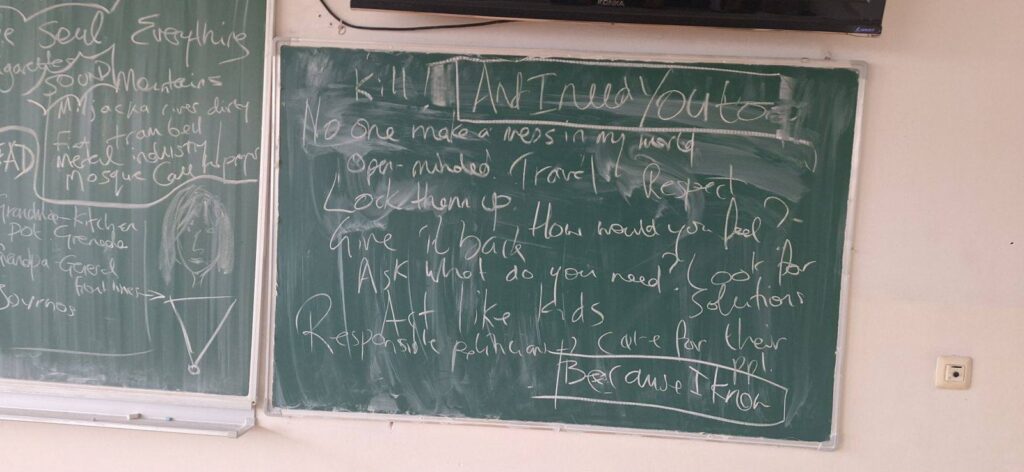 Soul Everything
SOUND Mountains
Miljacka river dirty
tram bell
Metal industry
Mosque Call
Grandma-Kitchen
pot. Grenade
Grandpa-Guard
front lines
KONKA
Kill
And I need You to
No one make a mess in my world
Open-minded. Travel Respect
Lock them up.
How would you feel?
Give it back
Ask what do you need? Look for
solutions
Act like Kids
Responsible politicians care for their
ppl.
Because I know